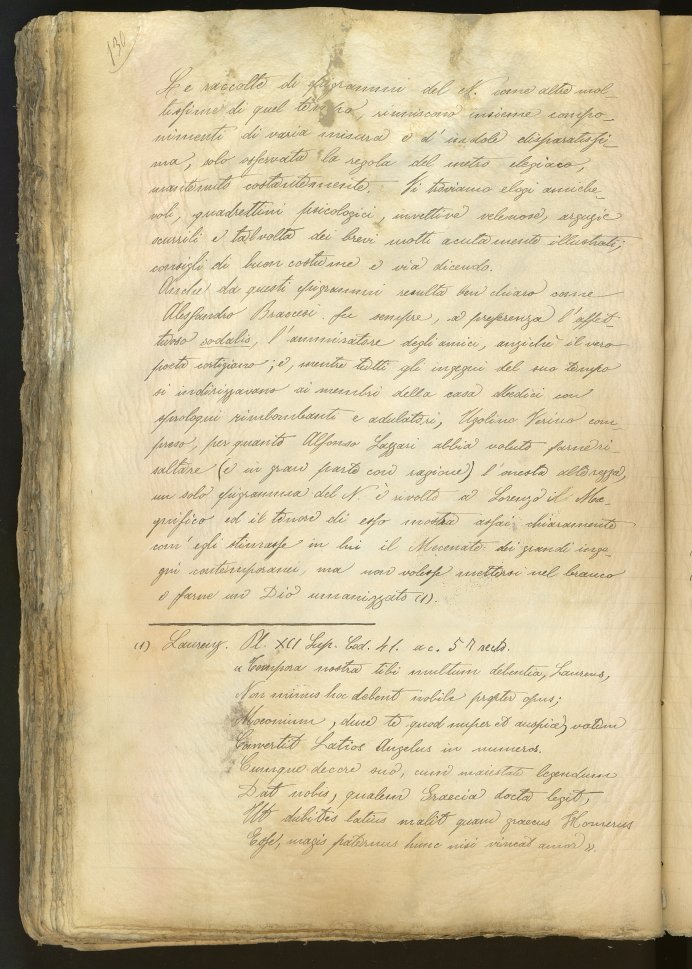 130
Le raccolte di epigrammi del N. come altre mol-
tissime di quel tempo, riuniscono insieme compo-
nimenti di varia misura e d'indole disparatissi-
ma, solo osservata la regola del metro elegiaco,
mantenuto costantemente. Vi troviamo elogi amiche-
voli, quadrettini psicologici, invettive velenose, arguzie
scurrili e talvolta dei brevi motti acutamente illustrati;
consigli di buon costume e via dicendo.
Anche da questi epigrammi risulta ben chiaro come
Alessandro Braccesi fu sempre, a preferenza l'affet-
tuoso sodalis, l'ammiratore degli amici, anzichè il vero
poeta cortigiano; e, mentre tutti gli ingegni del suo tempo
si indirizzavano ai membri della casa Medici con
sproloqui rimbombanti e adulatori, Ugolino Verino com-
preso, per quanto Alfonso Lazzari abbia voluto farne ri-
saltare (e in gran parte con ragione) l'onesta alterezza,
un solo epigramma del N. è rivolto a Lorenzo il Ma-
gnifico ed il tenore di esso mostra assai chiaramente
com'egli stimasse in lui il Mecenate dei grandi inge-
gni contemporanei, ma non volesse mettersi nel branco
e farne un Dio umanizzato (1).
(1) Laurenz. Pl. XCI Sup. Cod. 41. a c. 57 recto.
"Tempora nostra tibi multum debentia, Laurens,
Non minus hoc debent nobile propter opus;
Maeonium, duce te quod nuper et auspice, vatem
Convertit Latios Angelus in numeros.
Cumque decore suo, cum maiestate legendum
Dat nobis, qualem Graecia docta legit,
Ut dubites latius malit quam graecus Homerus
Esse, magis paternus hunc nisi vincat amor".